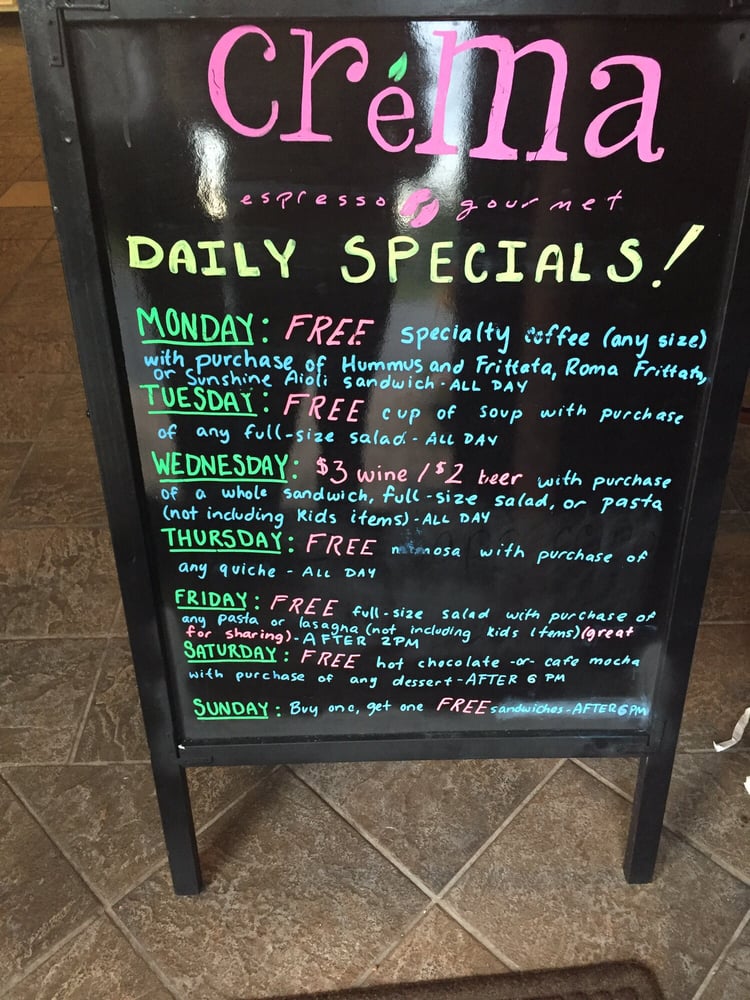 crèma
espresso gourmet
DAILY SPECIALS!
MONDAY: FREE specialty coffee (any size)
with purchase of Hummus and Frittata, Roma Frittata,
or Sunshine Aioli sandwich - ALL DAY
TUESDAY: FREE cup of soup with purchase
of any full-size salad - ALL DAY
WEDNESDAY: $3 wine / $2 beer with purchase
of a whole sandwich, full-size salad, or pasta
(not including kids items) - ALL DAY
THURSDAY: FREE mimosa with purchase of
any quiche - ALL DAY
FRIDAY: FREE full-size salad with purchase of
any pasta or lasagna (not including kids items) (great
for sharing) - AFTER 2PM
SATURDAY: FREE hot chocolate -or- cafe mocha
with purchase of any dessert - AFTER 6 PM
SUNDAY: Buy one, get one FREE sandwiches - AFTER 6PM